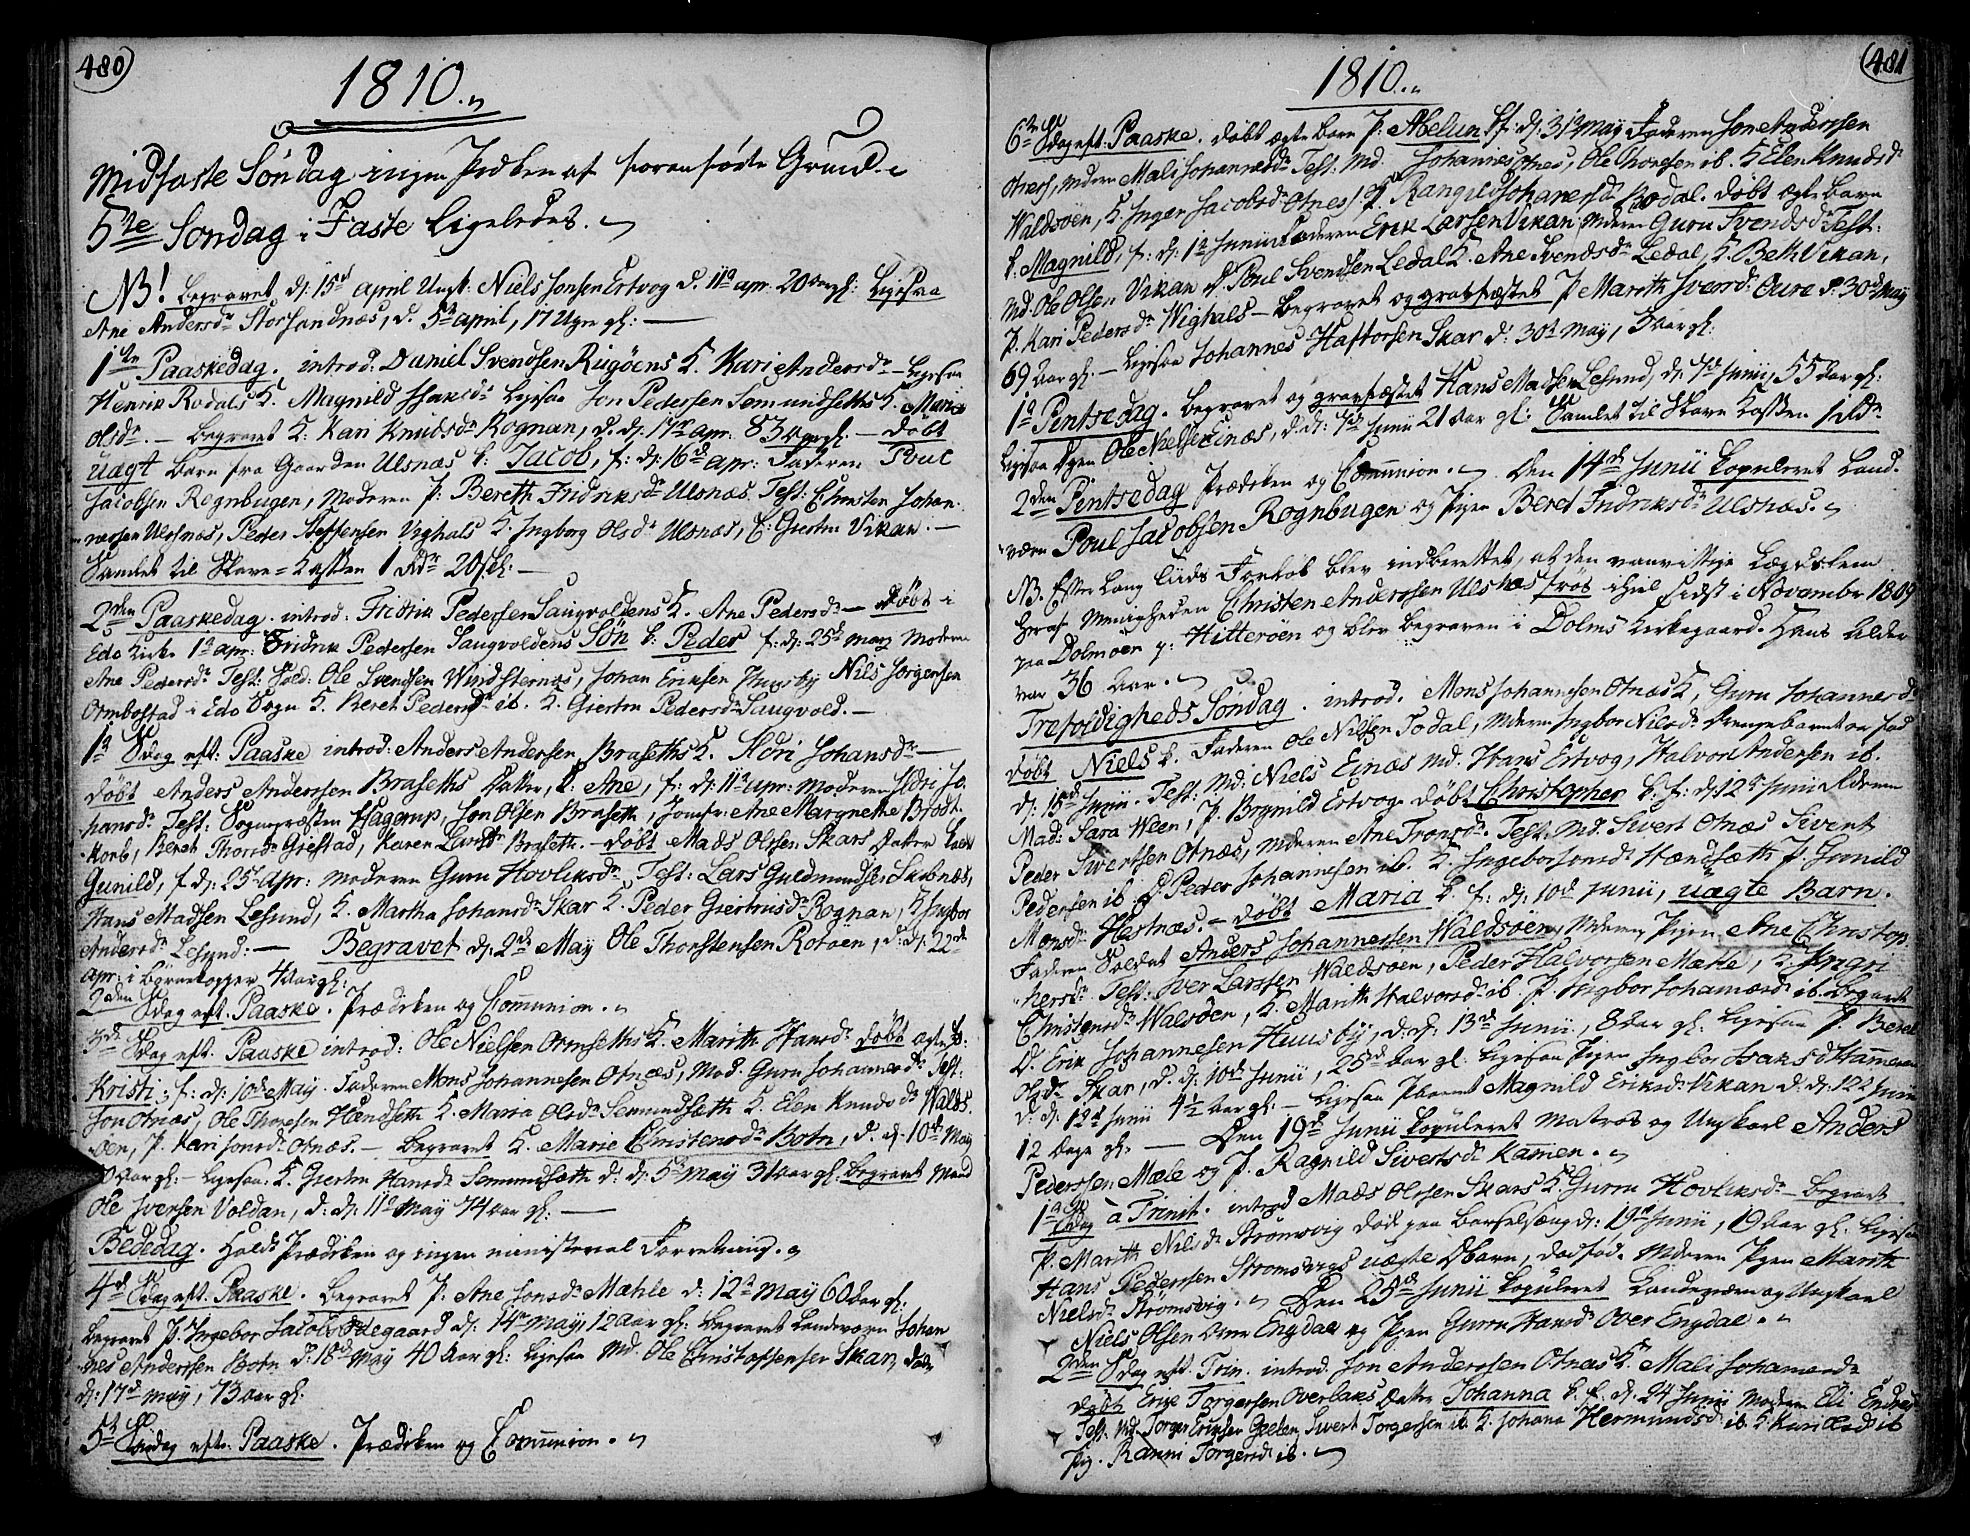 480
1810.
Midfaste Søndag ingen Prædken af foranførte Grund.
5te Søndag i Faste Ligeledes.
NB! Begravet d: 15de april Ungk: Niels Jonsen Ertvog d. 11te apr. 20 aar gl: Ligesaa
Ane Andersdr Storsandnæs, d. 5te april, 17 Uger gl:
1ste Paaskedag. introd: Daniel Svendsen Rügöens K. Kari Andersdr - Ligesaa
Henrik Rodals K. Magnild Isaksdr Ligesaa Jon Pedersen Semundseths K. Marie
Olsdr. - Begravet K: Kari Knudsdr Rognan, d. d: 17de apr: 83 aar gl. - Døbt
uægt Barn fra Gaarden Ulsnæs k: Jacob, f: d: 16de apr: Faderen Poul
Jacobsen Rognbugen, Moderen P: Bereth Fridriksdr Ulsnæs. Test: Christen Johan
nessen Ulsnæs, Peder Steffensen Vighals K. Ingborg Olsdr Ulsnæs, K: Giertru Vikan. -
Samlet til Skave-Kassen 1 Rdr 20 sk: -
2den Paaskedag. introd: Fridrik Pedersen Saugvoldens K. Ane Pedersdr - Døbt i
Edø Kirke 1te apr: Fridrik Pedersen Saugvoldens Søn k: Peder f: d: 25de marz Moderen
Ane Pedersdr Test: Sold: Ole Svendsen Windsternæs, Johan Eriksen Huusby Nils Jørgensen
Ormbostad i Edø Sogn K. Beret Pedersdr ib. K. Giertru Pedersdr Saugvold. -
1te Sdag eft. Paaske introd: Anders Anderssen Braseths K. Sidri Johansdr -
Døbt Anders Anderssen Braseths Datter, k. Ane, f: d: 11te apr: Moderen Sidri Jo
hansdr Test: Sognepræsten Hagerup, Jon Olsen Braseth, Jomfr: Ane Margrethe Brodt
korb, Beret Thorsdr Giestad, Karen Larsdr Braseth. - Døbt Mads Olssen Skars Datter kaldt
Gunild, f. d: 25de Apr: Moderen Guru Hovliksdr Test: Lars Guldmundsen Skibnæs,
Hans Madsen Lesund, K. Martha Johansdr Skar K. Peder Giertrusdr Rognan, K Ingbor
Andersdr Lesund: - Begravet d: 2de May Ole Thorstensen Rotøen, d: d: 22de
apr: i Børnekopper 4 aar gl:
2den Sdag eft. Paaske. Prædiken og Communion.
3de Sdag eft. Paaske introd: Ole Nielsen Ormseths K. Marith Hansdr Døbt ægte B:
Kristi, f: d: 10de May. Faderen Mons Johannesen Otnæs, Mod. Guru Johannesdr Test:
Jon Otnæs, Ole Thoresen Hændseth K. Maria Olsdr Semundsæth K. Elen Knudsdr Walds
øen, P. Kari Jonsdr Otnæs. - Begravet K. Marie Christensdr Botn, d. d: 10de May
aar gl: - Ligesaa K. Giertru Hansdr Semundsæth d: d: 5te May 31 aar gl. Begravet Mand
Ole Iversen Voldan, d: d: 11te May 74 aar gl: -
Bededag. Holdt Prædiken og ingen ministerial Forretning.
4de Sdag eft. Paaske. Begravet P. Ane Jonsdr Mæhle d: 12te May 60 aar gl:
Begravet P. Ingebor Jacobsdr Ødegaard d: 14de May, 12 aar gl: Begravet Landeværn Johan
nes Anderssen Botn d: 18de May 40 aar gl: Ligesaa Md. Ole Christophersen Skar, død
d: 17de May, 73 aar gl:
5te Søndag eft. Paaske. Prædiken og Communion.
481
1810.
6te Sdag eft. Paaske. Døbt ægte Barn P: Abelun f: d: 31te May Faderen Jon Anderssen
Otnæs, Moderen Mali Johannesdr Test: Md. Johannes Otnes, Ole Thoresen ib. K Elen Knudsdr
Waldsøen, K Inger Jacobsdr Otnes, P. Rangild Johannesdr Rodal. Døbt ægte Barn
k: Magnild, f: d: 1te Junii Faderen Erik Larssen Vikan, Moderen Guru Svendsdr Test:
Md. Ole Olsen Vikan S. Poul Svendsen Ledal K. Ane Svendsdr Ledal, K. Beth Vikan,
P. Kari Pedersdr Wighals - Begravet og gravfæstet P Marith Iversdr Aure d: 30te May
69 aar gl. - Ligesaa Johannes Haftorsen Skar d: 30te May, 3 aar gl:
1te Pintsedag. Begravet og gravfæstet Hans Madsen Lesund, d: 7de Junii, 55 aar gl:
Ligesaa Dgen Ole Nielsen Einæs, d: d: 7de Junii 21 aar gl: Samlet til Skave Kassen 1 Rdr
2den Pintsedag Prædiken og Communion. Den 14de Junii Kopuleret Land-
værn Poul Jacobsen Rognbugen og Pigen Beret Fridriksdr Ulsnæs.
NB. Efter lang Tids Forløb blev indberettet, at den vanvittige Lægdslem
heraf Menigheden Christen Anderssen Ulsnæs frøs ihjel sidst i November 1809
paa Dolmøen p: Hitterøen og blev begraven i Dolms Kirkegaard. Hans Alder
var 36 aar.
Trefoldigheds Søndag. introd. Mons Johannesen Otnæs K. Guru Johannesdr
Døbt Niels k. Faderen Ole Nilssen Todal, Moderen Ingbor Nilsdr Drengebarnet var fød
d: 15de Junii. Test. Md: Niels Einæs Md. Hans Ertvog, Halvor Andersen ib.
Mad: Sara Ween, P. Brynild Ertvog. Døbt Christopher k. f: d: 12te Junii Faderen
Peder Sivertsen Otnæs, Moderen Ane Tronsdr. Test. Md. Sivert Otnæs Sivent
Pedersen ib. S. Peder Johannesen ib. K. Ingebor Jonsdr Hændsæth P. Gunild
Monsdr Hestnæs. - Døbt Maria k f: d: 10de Junii, uægte Barn.
Faderen Soldat Anders Johannessen Waldsøen, Moderen Pigen Ane Christop
hersdr Test. Iver Larssen Waldsøen, Peder Halvorsen Mæhle, K. Ingri
Christensdr Walsøen, K. Marith Halvorsdr ib. P. Ingbor Johannesdr ib. Begravet
D. Erik Johannesen Huusby, d: d: 13de Junii, 8 aar gl. Ligesaa P. Beret
Olsdr Skar, d. d: 10de Junii, 25de aar gl. Ligesaa Pigen Ingbor Isaksdr Hammeren
d: d: 12te Junii 4½ aar gl. - Ligesaa Pbarnet Magnild Eriksdr Vikan d: d: 12te Junii
12 Dage gl. - Den 19de Junii Kopuleret Matros og Ungkarl Anders
Pederssen Mæle og P. Ragnild Sivertsdr Kamen.
1te Sdag à Trinit. introd Mads Olssen Skars K. Guru Hovliksdr - Begravet
P. Marith Nilsdr Strømsvig død paa Barselsæng d: 19de Junii, 19 aar gl. Ligesaa
Hans Pederssen Strømsvigs uægte Dbarn, dødfød. Moderen Pigen Marith
Nielsdr Strømsvig. Den 25de Junii Kopuleret Landeværn og Ungkarl
Niels Olsen Over Engdal og Pigen Guru Hansdr Over Engdal.
2den Sdag eft. Trin. introd. Jon Anderssen Otnæs K. Mali Johannesdr
Døbt Erik Torgersen Overlands Datter Johanna k. f. d. 24 Junii Moderen Eli Endresdr
Test. Md. Torger Eriksen Geelen, Sivert Torgersen ib K. Johana Hermundsdr ib. K Kari ib
Pig. Ranni Torgersdr ib.